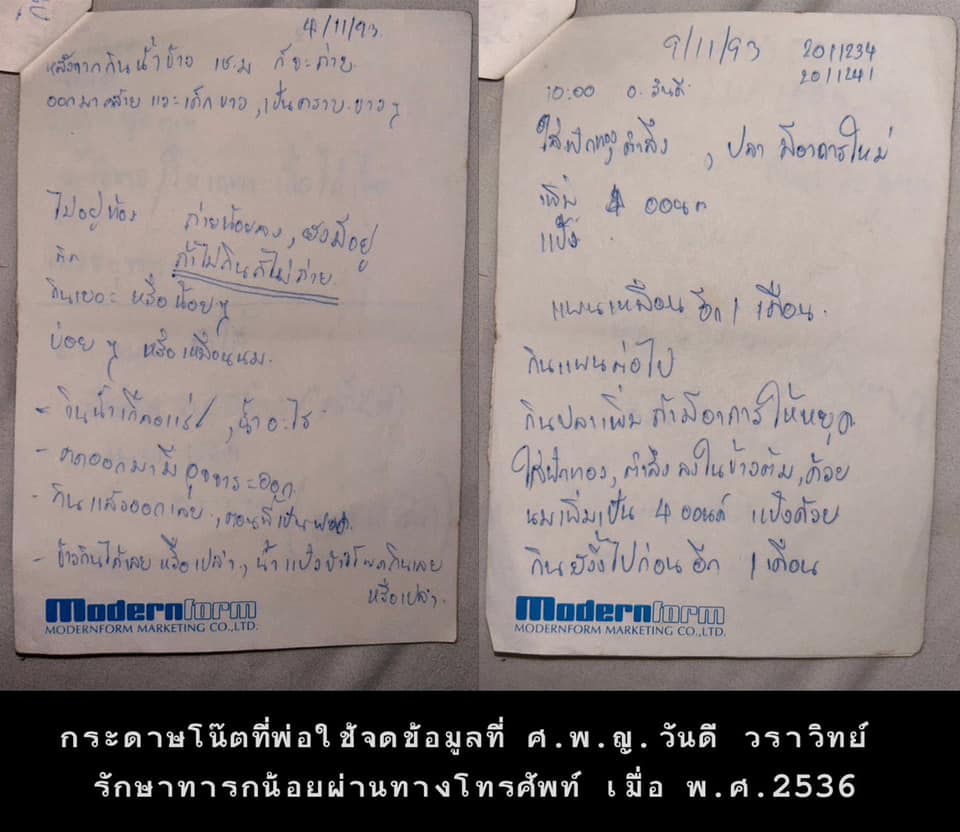 4/11/93
หลังจากกินน้ำข้าว ๑ช.ม ก็จะถ่าย
ออกมาคล้าย แวะเด็กขาว, เป็นคราบขาวๆ
ไม่อยู่ท้อง ถ่ายน้อยลง, ยังมีอยู่
ถ้าไม่กินก็ไม่ถ่าย
กินเยอะ หรือ น้อยๆ
บ่อยๆ หรือเหมือนนม.
- กินน้ำเกลือแร่, น้ำอะไร
- ตดออกมามีอุจจาระออก
- กินแล้วออกเลย, ตอนนี้เป็น
- ข้าวกินได้เลย หรือเปล่า, น้ำแป้งข้าวโพดกินเลย
หรือเปล่า.
Modernform
MODERNFORM MARKETING CO.,LTD.
9/11/93 2011234
2011241
10:00 อ.วันดี
ใส่ฟักทอง ตำลึง, ปลา มีอาการใหม่
เพิ่ม 4 ออนซ์
แป้ง
แพนเหมือน อีก 1 เดือน.
กินแพนต่อไป
กินปลาเพิ่ม ถ้ามีอาการให้หยุด
ใส่ฟักทอง, ตำลึง ลงในข้าวต้ม, ด้วย
นมเพิ่มเป็น 4 ออนซ์ แป้งด้วย
กินยังงี้ไปก่อน อีก 1 เดือน
Modernform
MODERNFORM MARKETING CO.,LTD.
กระดาษโน๊ตที่พ่อใช้จดข้อมูลที่ ศ.พ.ญ.วันดี วราวิทย์
รักษาทารกน้อยผ่านทางโทรศัพท์ เมื่อ พ.ศ.2536